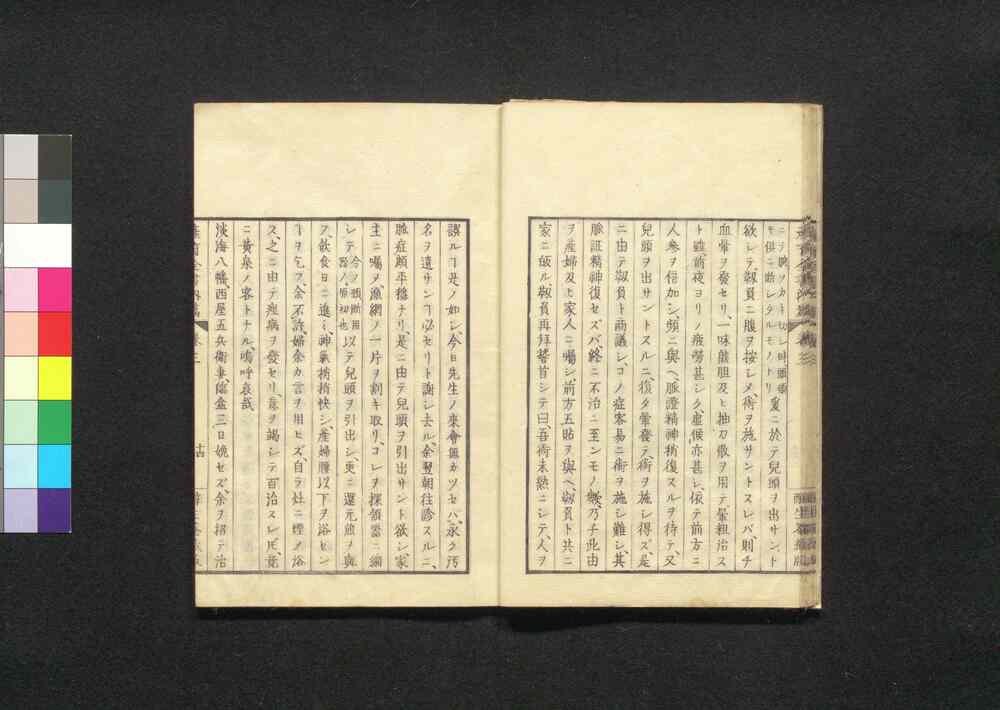 ニヲ映ヲカキ切レ時頭項
モ俱ニ斷レタルモノトリ
爰ニ於テ兒頭ヲ出サント
欲レテ靱員ニ腹ヲ按レメ、術ヲ施サントスレバ、則チ
血暈ヲ發セリ、一味熊胆及ヒ抽刀散ヲ用テ、暈粗治ス
ト雖、前夜ヨリノ疲勞甚シク、虛候亦甚レ、依テ前方ニ
人參ヲ倍加シ、頻ニ與ヘ、脈證精神稍復スルヲ待テ、又
兒頭ヲ出サントスルニ、復タ暈發テ、術ヲ施レ得ズ、是
ニ由テ靱員ト商議レ、コノ症容易ニ術ヲ施シ難レ、其
脈証精神復セズバ、終ニ不治ニ至ンモノ
ヲ産婦及ヒ家人ニ囑シ、前方五貼ヲ與ヘ、靱員ト共ニ
家ニ皈ル、靱員再拜稽首シテ曰、吾術未熟ニシテ、人ヲ
誤ルヿ是ノ如シ、今日先生ノ來會無カツセハ、永ク汚
名ヲ遺サンヿ必セリト謝シ去ル、余翌朝往診スルニ、
脈症頗平穩ナリ、是ニ由テ兒頭ヲ引出サント欲シ、家
主ニ囑ヲ漁網ノ一片ヲ割キ取リ、コレヲ探頷器ニ綢
レテ
今ノ頭斷用
器ノ原初也
以テ兒頭ヲ引出シ、更ニ還元煎ヲ與
フ、飮食日ニ進ミ、神氣稍稍快シ、産婦腰以下ヲ浴セン
ヿヲ乞フ、余不許、婦余カ言ヲ用ヒズ、自ラ灶ニ煙メ浴
ス、之ニ由テ痙病ヲ發セリ、意ヲ竭シテ百治スレ𪜈、竟
ニ黄泉ノ客トナル、嗚呼哀哉
淡海八幡、西屋五兵衞妻、臨盆三日娩セズ、余ヲ招テ治
卷三